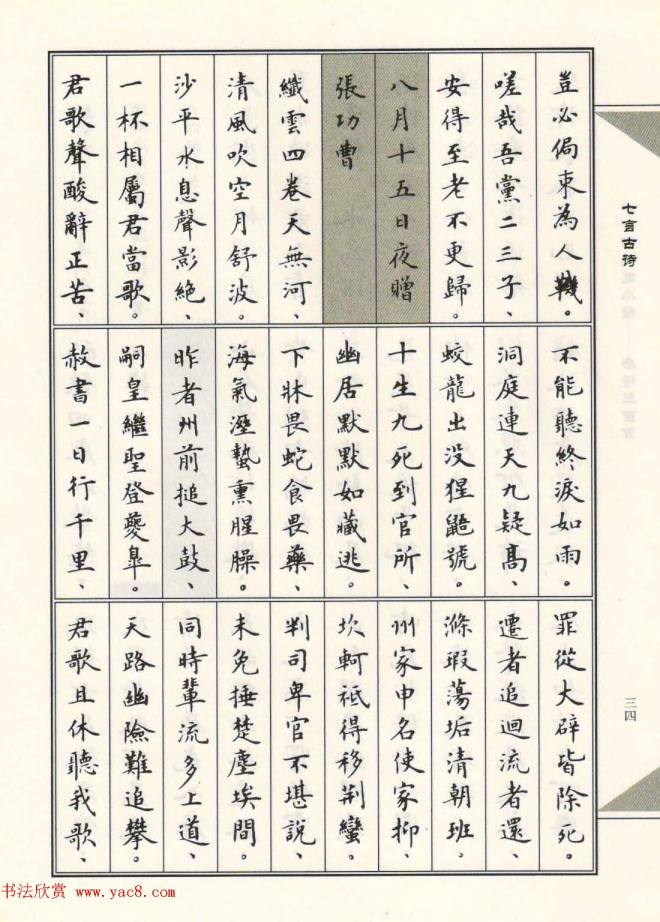 豈必侷束為人鞿。
嗟哉吾黨二三子、
安得至老不更歸。
八月十五日夜贈
張功曹
纖雲四卷天無河、
清風吹空月舒波。
沙平水息聲影絕、
一杯相屬君當歌。
君歌聲酸辭正苦、
不能聽終淚如雨。
洞庭連天九疑高、
蛟龍出没猩鼯號。
十生九死到官所、
幽居默默如藏逃。
下牀畏蛇食畏藥、
海氣溼蟄熏腥臊。
昨者州前搥大鼓、
嗣皇繼聖登夔皐。
赦書一日行千里、
罪從大辟皆除死。
遷者追迴流者還、
滌瑕蕩垢清朝班。
州家申名使家抑、
坎軻祗得移荊蠻。
判司卑官不堪說、
未免捶楚塵埃間。
同時輩流多上道、
天路幽險難追攀。
君歌且休聽我歌、
七言古诗
三四
书法欣赏 www.yac8.com